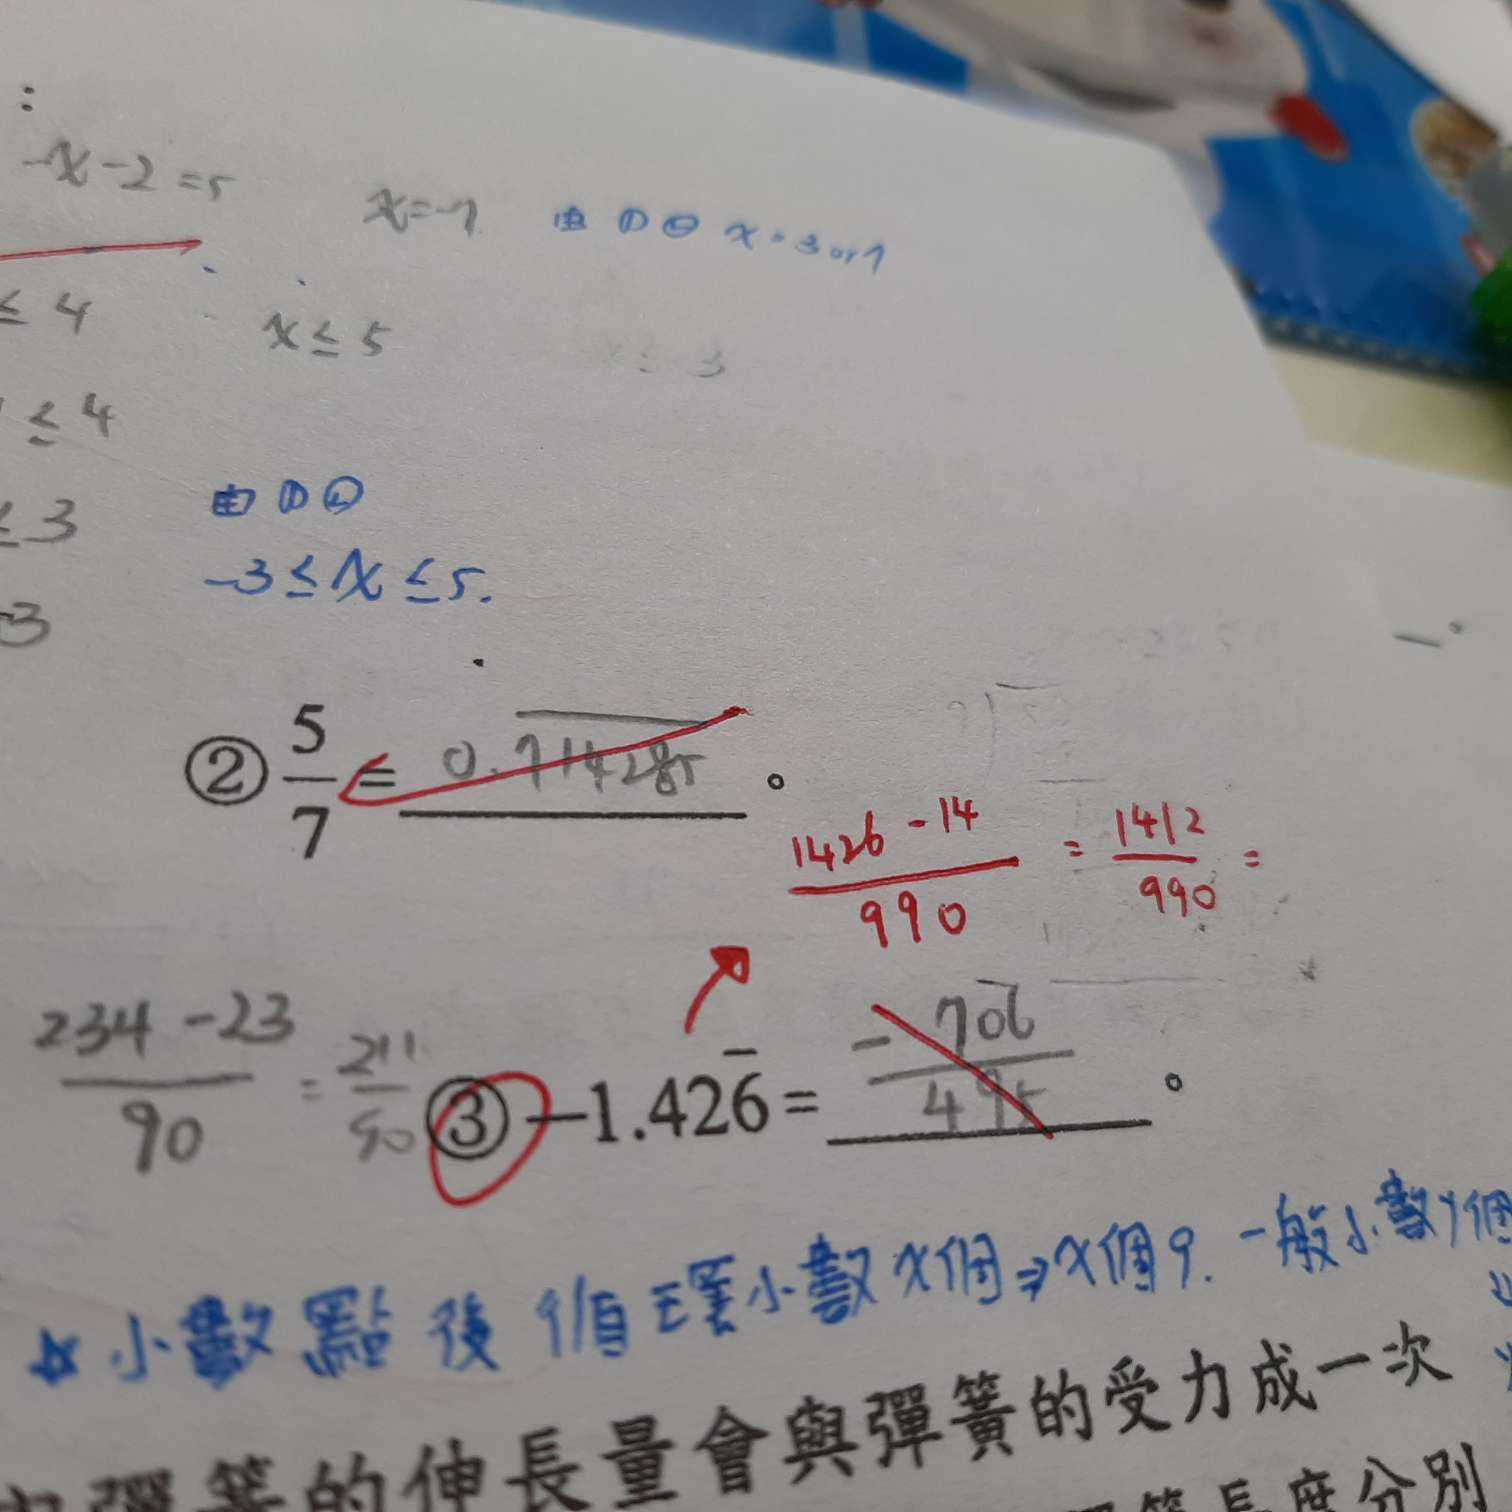 :
-x-2=5
x=-7
由①② x=3 or 7
≤ 4
x ≤ 5
≤ 4
≤ 3
由①②
-3 ≤ x ≤ 5.
-3
② 5/7 = 0.714285 。
(1426-14)/990 = 1412/990 =
(234-23)/90 = 211/90
③ -1.426̅ = -706/495 。
☆小數點後循環小數x個⇒x個9. 一般小數y個
彈簧的伸長量會與彈簧的受力成一次
長度分別